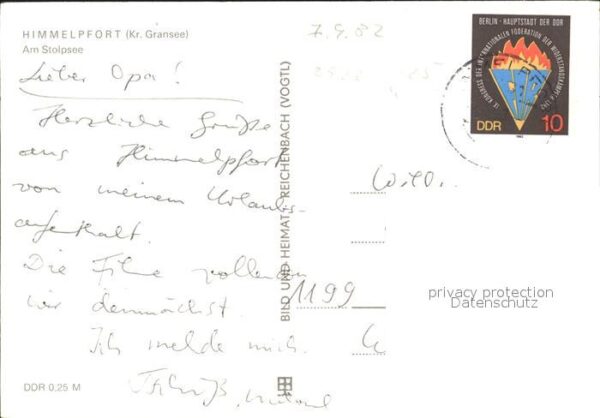 HIMMELPFORT (Kr. Gransee)
Am Stolpsee
7.9.82
Lieber Opa!
Herzliche Grüße
aus Himmelpfort
von meinem Urlaubs-
aufenthalt.
Die Filme
wir demnächst.
Ich melde mich.
DDR 0,25 M
BILD UND HEIMAT REICHENBACH (VOGTL)
BERLIN · HAUPTSTADT DER DDR
IX. KONGRESS DER INTERNATIONALEN FÖDERATION DER WIDERSTANDSKÄMPFER
DDR 10
1982
1199
privacy protection
Datenschutz